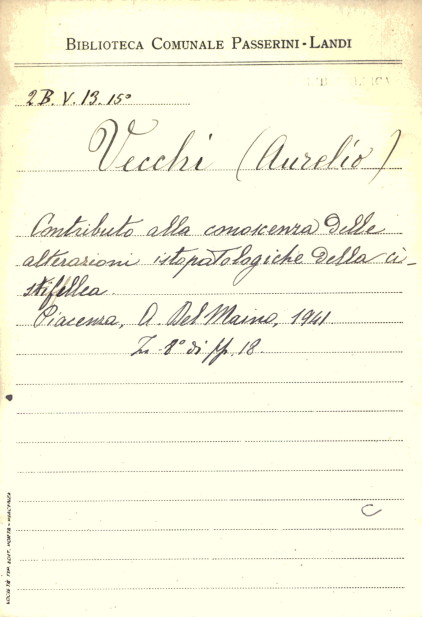 BIBLIOTECA COMUNALE PASSERINI-LANDI
2B. V. 13. 15°
Vecchi (Aurelio)
Contributo alla conoscenza delle
alterazioni istopatologiche della ci-
stifellea.
Piacenza, A. Del Maino, 1941
In 8° di pp. 18.
C